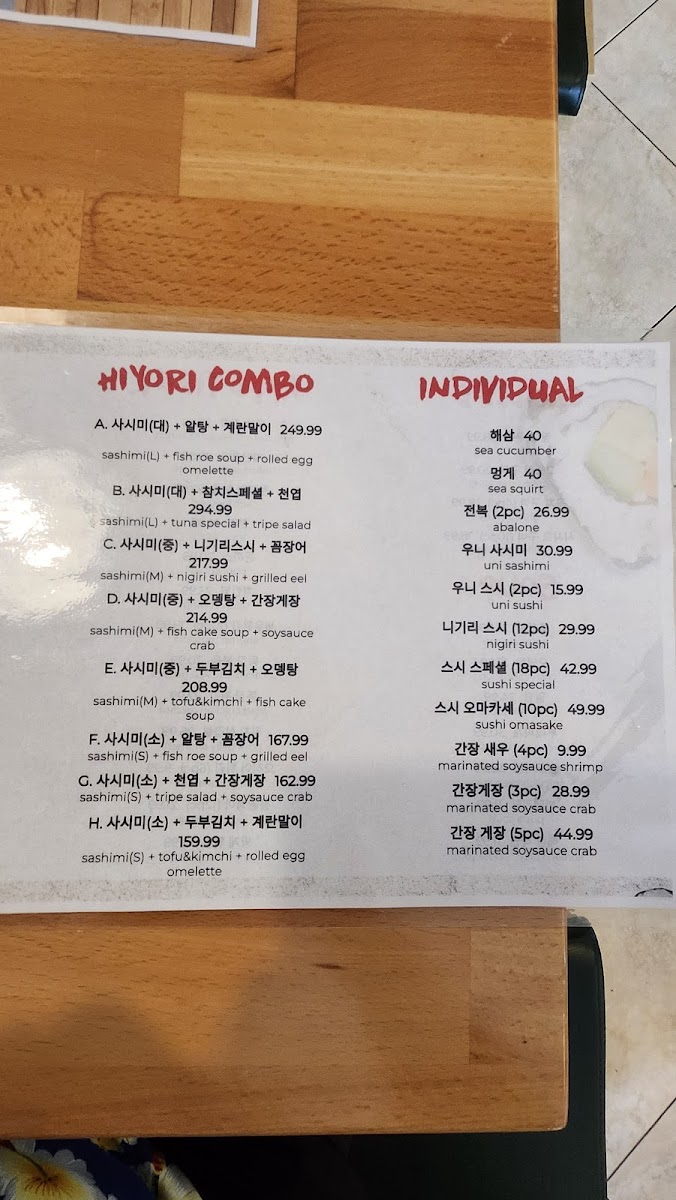 HIYORI COMBO
A. 사시미(대) + 알탕 + 계란말이 249.99
sashimi(L) + fish roe soup + rolled egg
omelette
B. 사시미(대) + 참치스페셜 + 천엽
294.99
sashimi(L) + tuna special + tripe salad
C. 사시미(중) + 니기리스시 + 꼼장어
217.99
sashimi(M) + nigiri sushi + grilled eel
D. 사시미(중) + 오뎅탕 + 간장게장
214.99
sashimi(M) + fish cake soup + soysauce
crab
E. 사시미(중) + 두부김치 + 오뎅탕
208.99
sashimi(M) + tofu&kimchi + fish cake
soup
F. 사시미(소) + 알탕 + 꼼장어 167.99
sashimi(S) + fish roe soup + grilled eel
G. 사시미(소) + 천엽 + 간장게장 162.99
sashimi(S) + tripe salad + soysauce crab
H. 사시미(소) + 두부김치 + 계란말이
159.99
sashimi(S) + tofu&kimchi + rolled egg
omelette
INDIVIDUAL
해삼 40
sea cucumber
멍게 40
sea squirt
전복 (2pc) 26.99
abalone
우니 사시미 30.99
uni sashimi
우니 스시 (2pc) 15.99
uni sushi
니기리 스시 (12pc) 29.99
nigiri sushi
스시 스페셜 (18pc) 42.99
sushi special
스시 오마카세 (10pc) 49.99
sushi omasake
간장 새우 (4pc) 9.99
marinated soysauce shrimp
간장게장 (3pc) 28.99
marinated soysauce crab
간장 게장 (5pc) 44.99
marinated soysauce crab